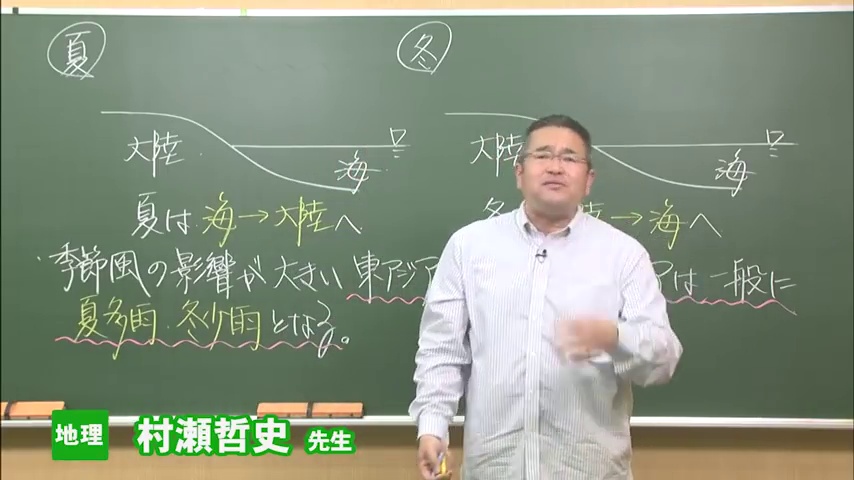 夏
冬
大陸
海
大陸
海
夏は海→大陸へ
冬 陸→海へ
季節風の影響が大きい東アジア アは一般に
夏多雨・冬少雨となる。
地理 村瀬哲史 先生